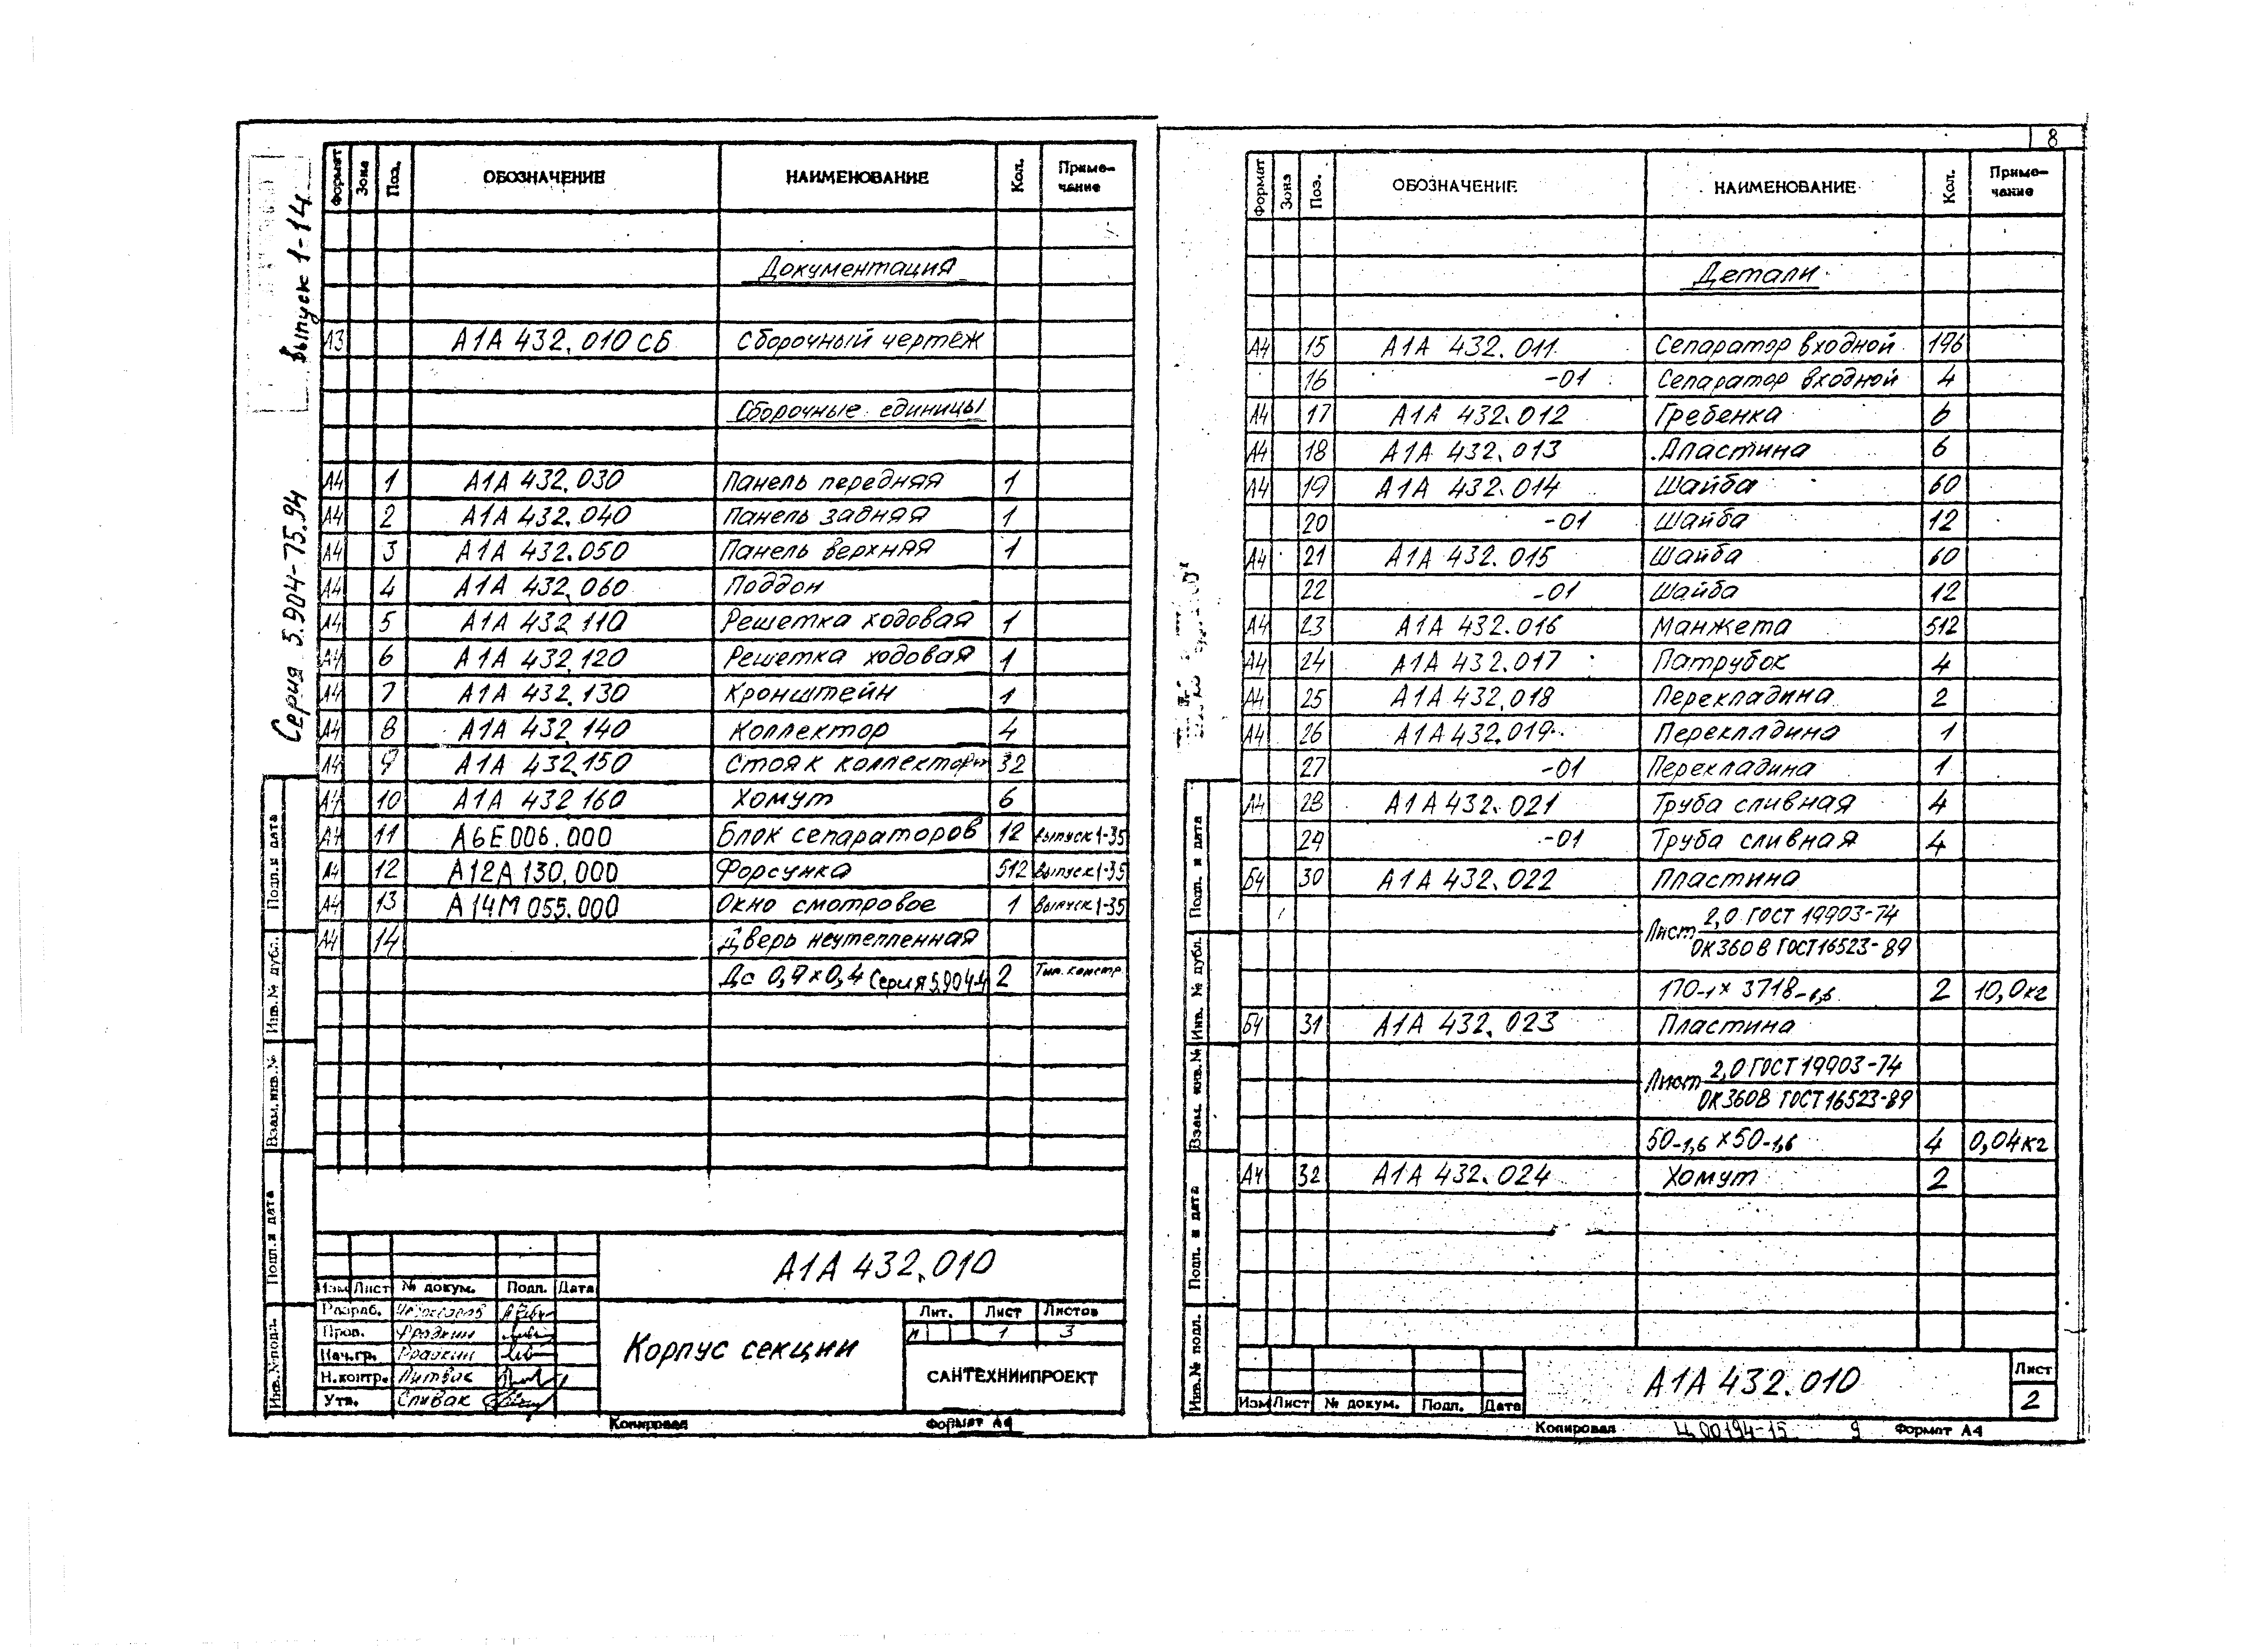 Серия 5.904-75.94 Выпуск 1-14
Формат Зона Поз. ОБОЗНАЧЕНИЕ НАИМЕНОВАНИЕ Кол. Приме-
чание
Документация
А3 А1А 432.010 СБ Сборочный чертеж
Сборочные единицы
А4 1 А1А 432.030 Панель передняя 1
А4 2 А1А 432.040 Панель задняя 1
А4 3 А1А 432.050 Панель верхняя 1
А4 4 А1А 432.060 Поддон
А4 5 А1А 432.110 Решетка ходовая 1
А4 6 А1А 432.120 Решетка ходовая 1
А4 7 А1А 432.130 Кронштейн 1
А4 8 А1А 432.140 Коллектор 4
А4 9 А1А 432.150 Стояк коллектора 32
А4 10 А1А 432 160 Хомут 6
А4 11 А6Е 006.000 Блок сепараторов 12 Выпуск 1-35
А4 12 А12А 130.000 Форсунка 512 Выпуск 1-35
А4 13 А14М 055.000 Окно смотровое 1 Выпуск 1-35
А4 14 Дверь неутепленная
Ду 0,9×0,4 Серия 5.904-4 2 Тип. констр.
Подп. и дата
Инв. № дубл.
Взам. инв. №
Подп. и дата
Инв. № подл.
А1А 432.010
Изм Лист № докум. Подп. Дата
Разраб.
Пров. Фрадкин
Нач.гр. Фрадкин
Н.контр. Литвис
Утв. Спивак
Корпус секции
Лит. Лист Листов
И 1 3
САНТЕХНИИПРОЕКТ
Копировал Формат А4
8
Формат Зона Поз. ОБОЗНАЧЕНИЕ НАИМЕНОВАНИЕ Кол. Приме-
чание
Детали
А4 15 А1А 432.011 Сепаратор входной 196
16 -01 Сепаратор входной 4
А4 17 А1А 432.012 Гребенка 6
А4 18 А1А 432.013 Пластина 6
А4 19 А1А 432.014 Шайба 60
20 -01 Шайба 12
А4 21 А1А 432.015 Шайба 60
22 -01 Шайба 12
А4 23 А1А 432.016 Манжета 512
А4 24 А1А 432.017 Патрубок 4
А4 25 А1А 432.018 Перекладина 2
А4 26 А1А 432.019 Перекладина 1
27 -01 Перекладина 1
А4 28 А1А 432.021 Труба сливная 4
29 -01 Труба сливная 4
Б4 30 А1А 432.022 Пластина
Лист 2,0 ГОСТ 19903-74
ОК360В ГОСТ 16523-89
170-1 × 3718-1,6 2 10,0кг
Б4 31 А1А 432.023 Пластина
Лист 2,0 ГОСТ 19903-74
ОК360В ГОСТ 16523-89
50-1,6 × 50-1,6 4 0,04кг
А4 32 А1А 432.024 Хомут 2
Подп. и дата
Инв. № дубл.
Взам. инв. №
Подп. и дата
Инв. № подл.
Изм Лист № докум. Подп. Дата
А1А 432.010
Лист
2
Копировал Ц.00194-15 9 Формат А4